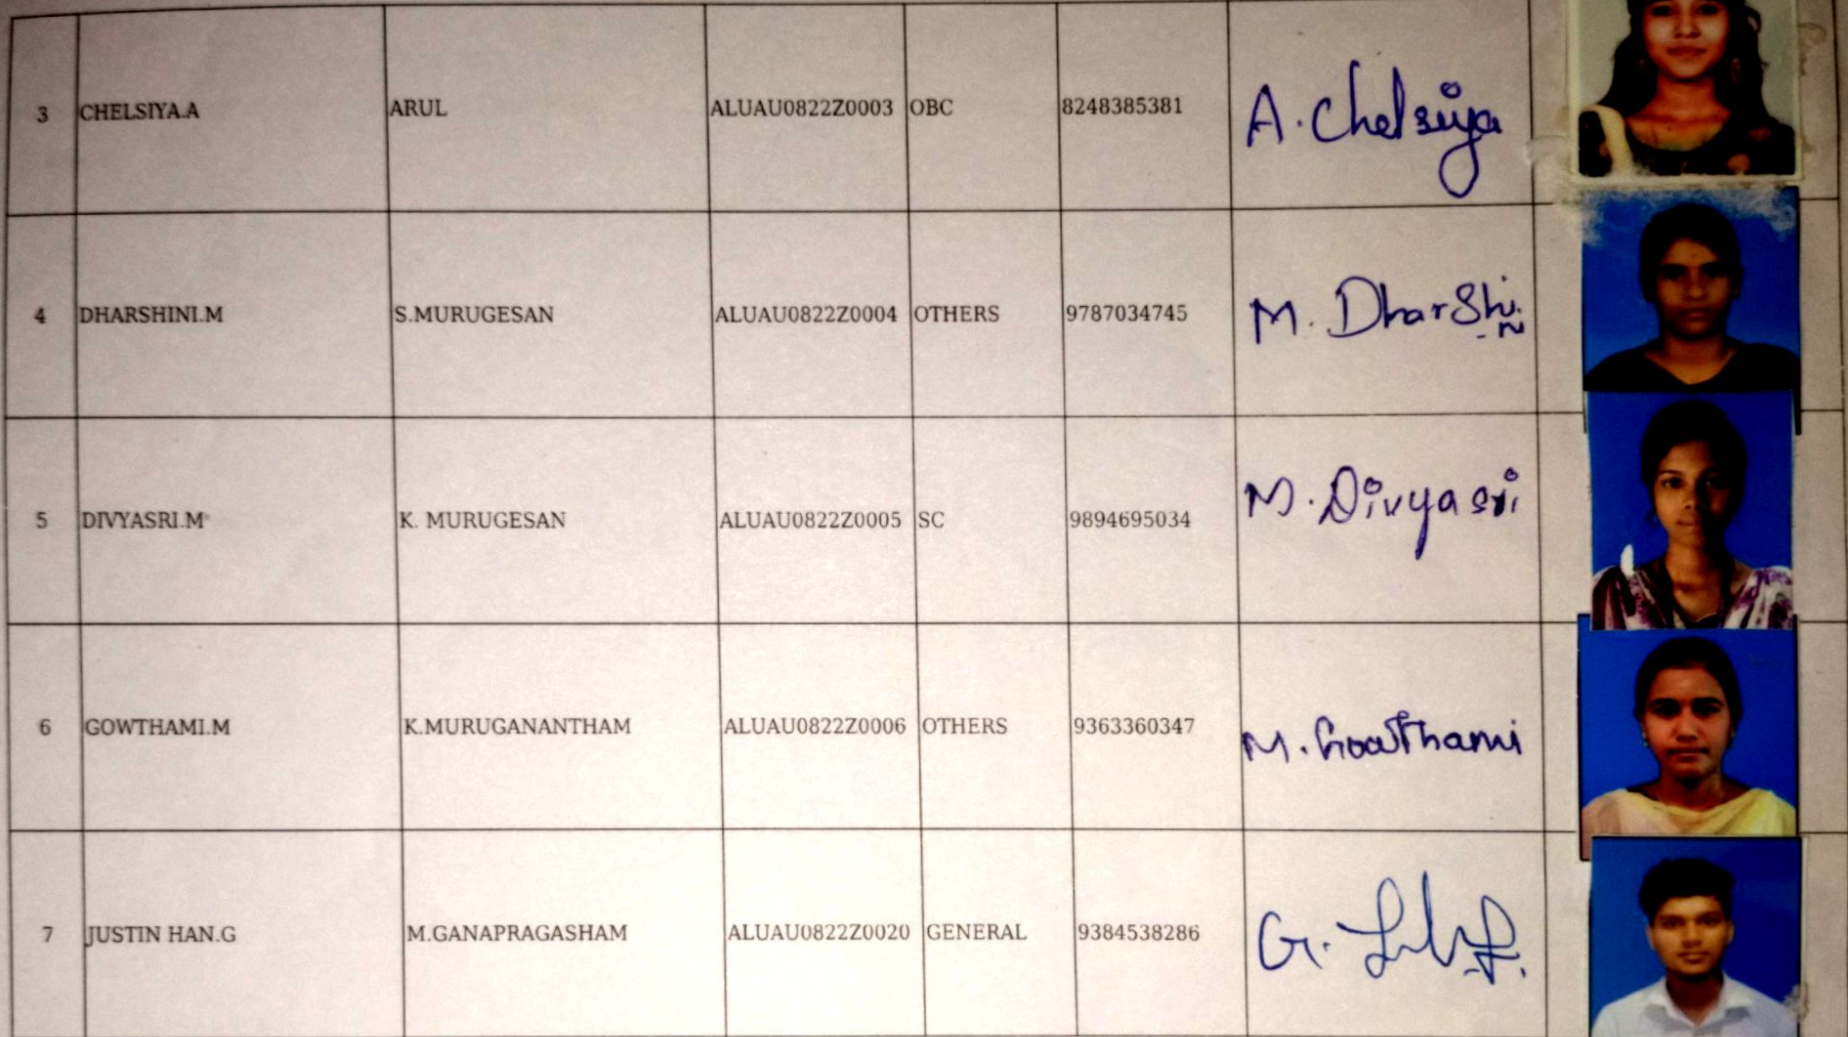 3 CHELSIYA.A ARUL ALUAU0822Z0003 OBC 8248385381 A. Chelsiya
4 DHARSHINI.M S.MURUGESAN ALUAU0822Z0004 OTHERS 9787034745 M. Dharshini
5 DIVYASRI.M K. MURUGESAN ALUAU0822Z0005 SC 9894695034 M. Divyasri
6 GOWTHAMI.M K.MURUGANANTHAM ALUAU0822Z0006 OTHERS 9363360347 M. Gowthami
7 JUSTIN HAN.G M.GANAPRAGASHAM ALUAU0822Z0020 GENERAL 9384538286 G.